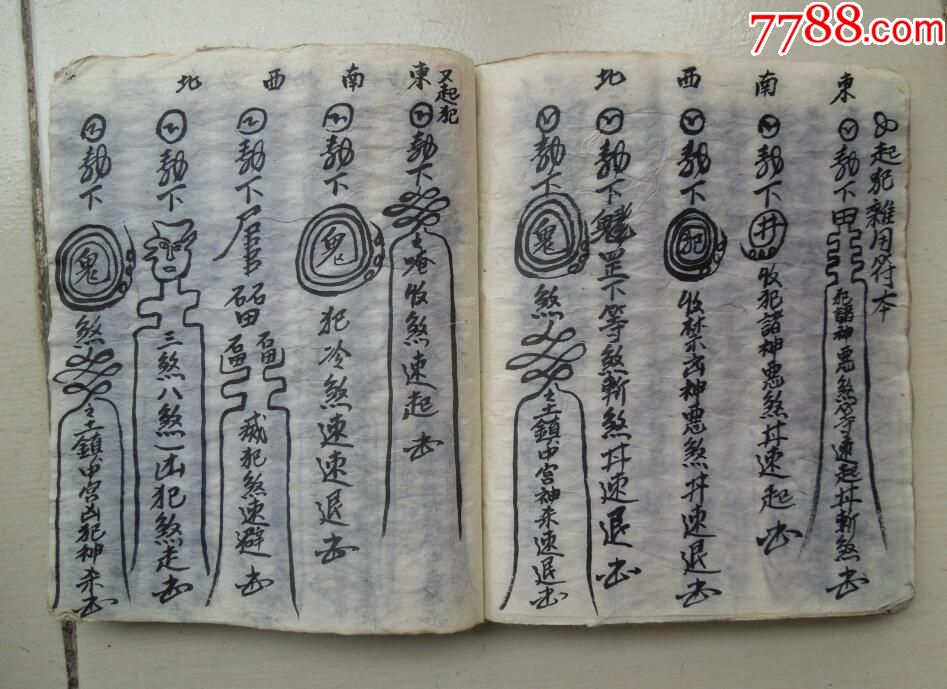 7788.com
起犯雜用符本
東
勅下 犯諸神悪煞等速起井斬煞去
南
勅下 井 收犯諸神悪煞井速起去
西
勅下 犯 收禁不出神悪煞井速退去
北
勅下 罡下等煞斬煞井速退去
勅下 鬼 煞 主鎮中宮神来速退去
又起犯
東
勅下 唵收煞速起去
南
勅下 鬼 犯冷煞速速退去
西
勅下 犯煞速避去
北
勅下 三煞八煞一凶犯煞走去
勅下 鬼 煞 主鎮中宮凶犯神来去